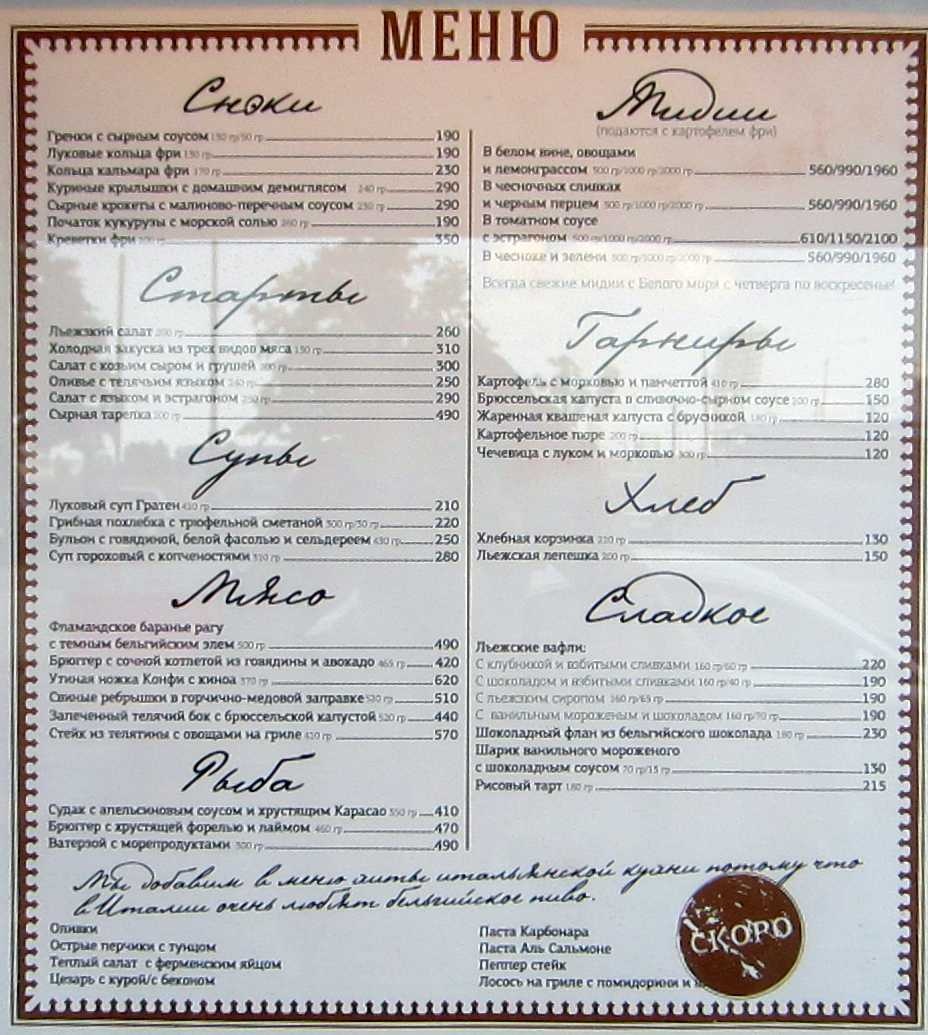 МЕНЮ
Снэки
Гренки с сырным соусом 150 гр/50 гр 190
Луковые кольца фри 150 гр 190
Кольца кальмара фри 170 гр 230
Куриные крылышки с домашним демиглясом 240 гр 290
Сырные крокеты с малиново-перечным соусом 230 гр 290
Початок кукурузы с морской солью 260 гр 190
Креветки фри 350
Старты
Льежский салат 200 гр 260
Холодная закуска из трех видов мяса 150 гр 310
Салат с козьим сыром и грушей 200 гр 300
Оливье с телячьим языком 240 гр 250
Салат с языком и эстрагоном 250 гр 290
Сырная тарелка 300 гр 490
Супы
Луковый суп Гратен 410 гр 210
Грибная похлебка с трюфельной сметаной 300 гр/30 гр 220
Бульон с говядиной, белой фасолью и сельдереем 430 гр 250
Суп гороховый с копченостями 310 гр 280
Мясо
Фламандское баранье рагу
с темным бельгийским элем 500 гр 490
Брюггер с сочной котлетой из говядины и авокадо 465 гр 420
Утиная ножка Конфи с киноа 370 гр 620
Свиные ребрышки в горчично-медовой заправке 520 гр 510
Запеченный телячий бок с брюссельской капустой 520 гр 440
Стейк из телятины с овощами на гриле 410 гр 570
Рыба
Судак с апельсиновым соусом и хрустящим Карасао 350 гр 410
Брюггер с хрустящей форелью и лаймом 460 гр 470
Ватерзой с морепродуктами 500 гр 490
Мидии
(подаются с картофелем фри)
В белом вине, овощами
и лемонграссом 500 гр/1000 гр/2000 гр 560/990/1960
В чесночных сливках
и черным перцем 500 гр/1000 гр/2000 гр 560/990/1960
В томатном соусе
с эстрагоном 500 гр/1000 гр/2000 гр 610/1150/2100
В чесноке и зелени 500 гр/1000 гр/2000 гр 560/990/1960
Всегда свежие мидии с Белого моря с четверга по воскресенье!
Гарниры
Картофель с морковью и панчеттой 410 гр 280
Брюссельская капуста в сливочно-сырном соусе 200 гр 150
Жаренная квашеная капуста с брусникой 180 гр 120
Картофельное пюре 200 гр 120
Чечевица с луком и морковью 300 гр 120
Хлеб
Хлебная корзинка 210 гр 130
Льежская лепешка 200 гр 150
Сладкое
Льежские вафли:
С клубникой и взбитыми сливками 160 гр/60 гр 220
С шоколадом и взбитыми сливками 160 гр/40 гр 190
С льежским сиропом 160 гр/65 гр 190
С ванильным мороженым и шоколадом 160 гр/70 гр 190
Шоколадный флан из бельгийского шоколада 180 гр 230
Шарик ванильного мороженого
с шоколадным соусом 70 гр/15 гр 130
Рисовый тарт 180 гр 215
Мы добавим в меню хиты итальянской кухни потому что
в Италии очень любят бельгийское пиво.
Оливки
Острые перчики с тунцом
Теплый салат с ферменским яйцом
Цезарь с курой/с беконом
Паста Карбонара
Паста Аль Сальмоне
Пеппер стейк
Лосось на гриле с помидорини и
СКОРО